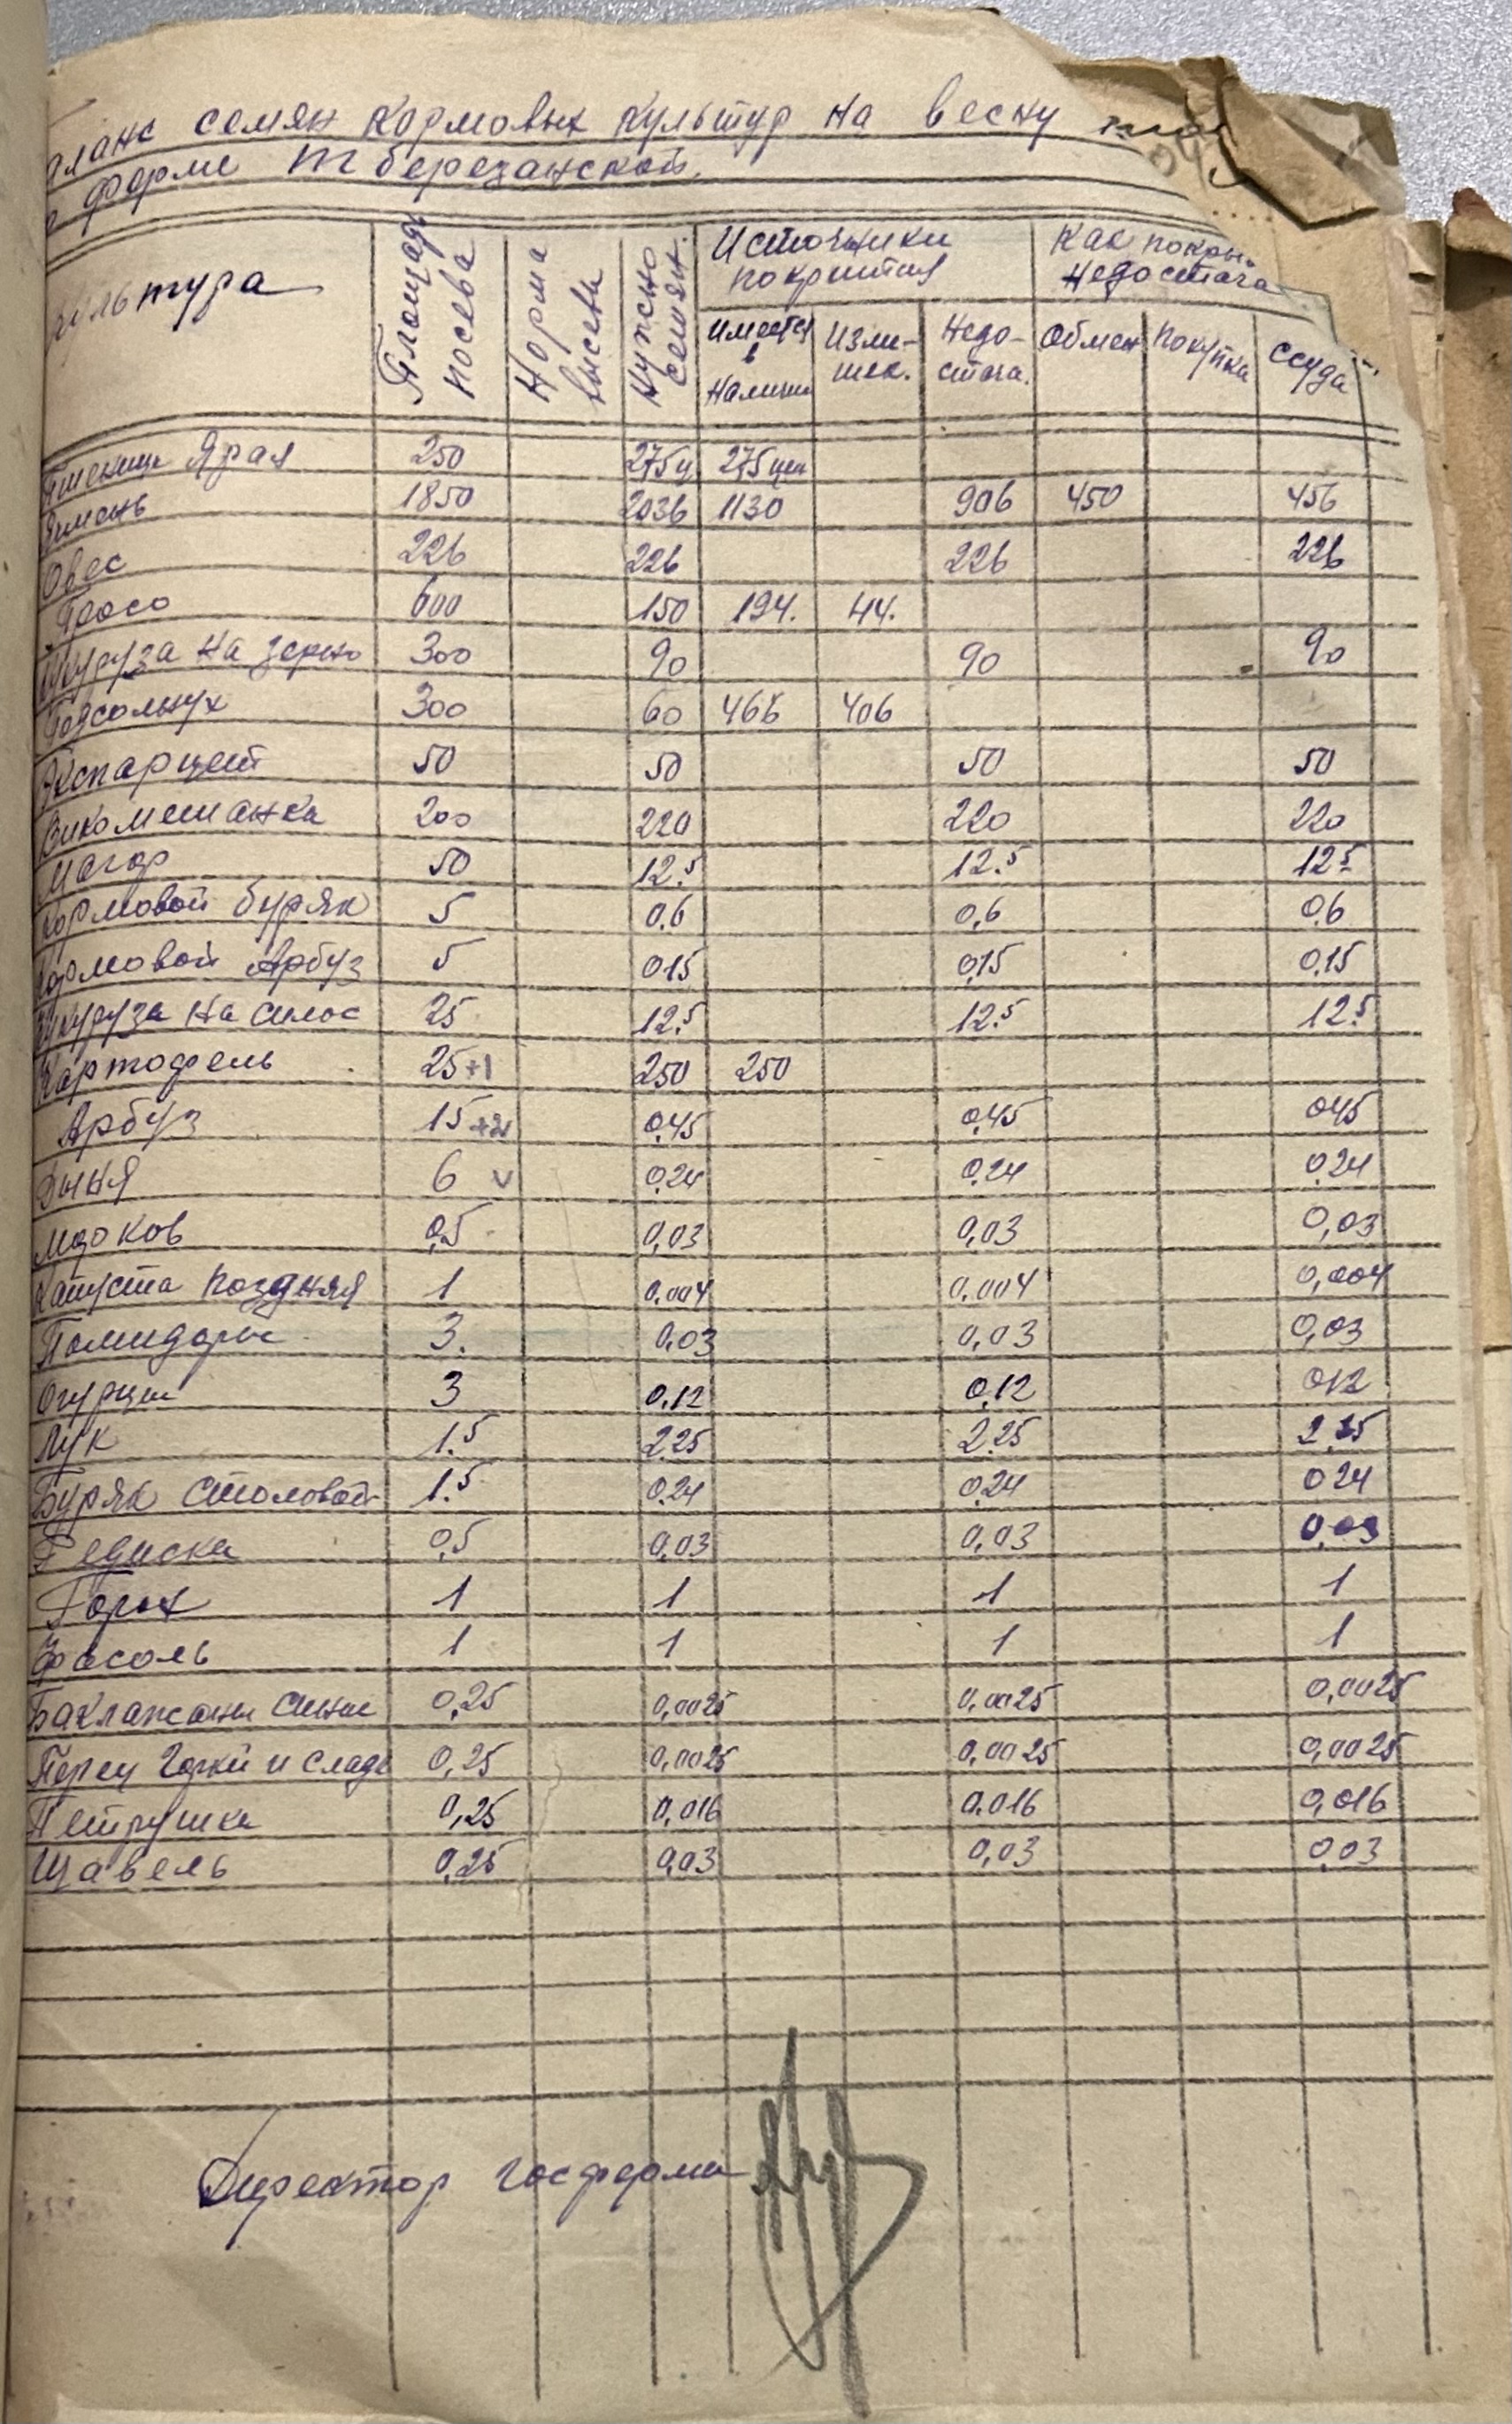 аланс семян кормовых культур на весну
ферме Тберезанской.
ультура Площадь посева Норма высева Нужно семян. Источники покрытия Как покры. недостача
Имеется в наличии Изли-шек. Недо-стача. Обмен покупка ссуда
Пшеница Ярая 250 275ц 275цен
Ячмень 1850 2036 1130 906 450 456
Овес 226 226 226 226
Просо 600 150 194. 44.
куруза на зерно 300 90 90 90
Подсолнух 300 60 466 406
Экспарцет 50 50 50 50
Викомешанка 200 220 220 220
Могар 50 12.5 12.5 12.5
Кормовой буряк 5 0.6 0.6 0.6
Кормовой Арбуз 5 0.15 0.15 0.15
укуруза на силос 25 12.5 12.5 12.5
Картофель 25+1 250 250
Арбуз 15 0.45 0.45 0.45
Дыня 6 v 0.24 0.24 0.24
0,5 0,03 0,03 0,03
Капуста поздняя 1 0.004 0.004 0,004
Помидоры 3. 0.03 0,03 0,03
Огурцы 3 0.12 0.12 0.12
Лук 1.5 2.25 2.25 2.25
Буряк столовой 1.5 0.24 0.24 0.24
Редиска 0,5 0,03 0,03 0,03
Горох 1 1 1 1
Фасоль 1 1 1 1
Баклажаны синие 0,25 0,0025 0,0025 0,0025
Перец Горкий и Слад 0,25 0,0025 0,0025 0,0025
Петрушка 0,25 0,016 0.016 0,016
Щавель 0,25 0,03 0,03 0,03
Директор госферми